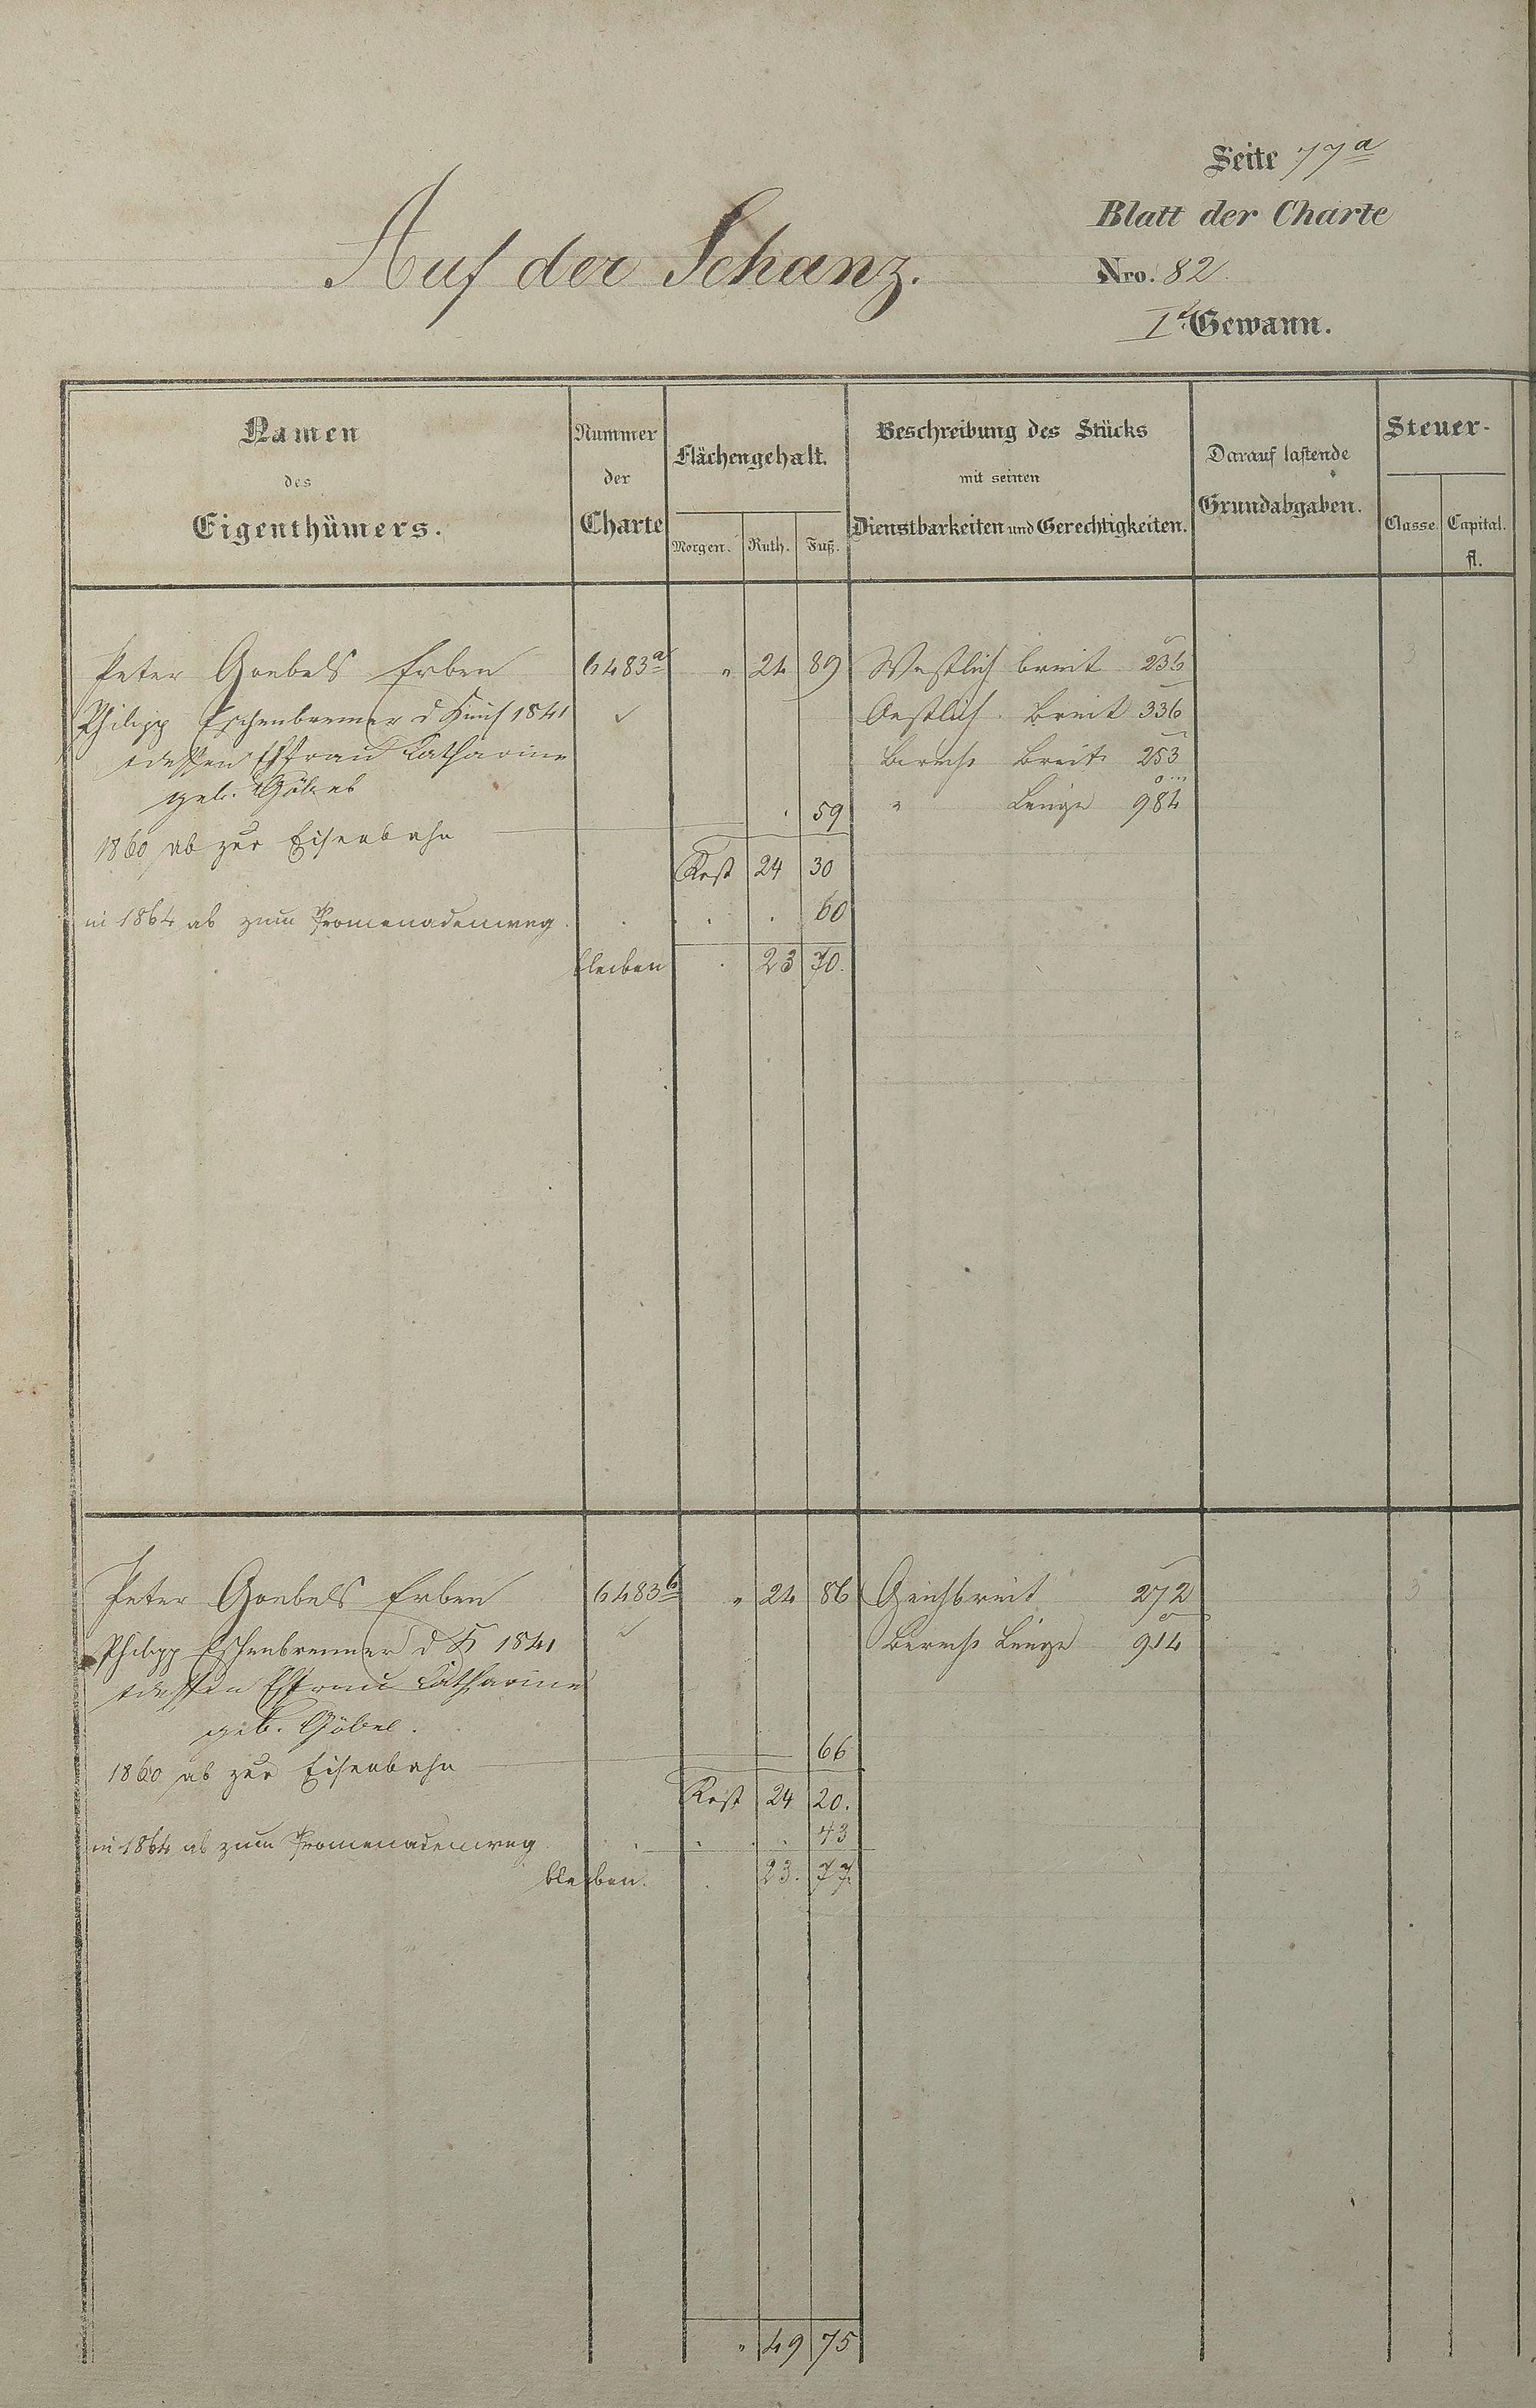 Seite 77a
Blatt der Charte
Auf der Schanz.
Nro. 82.
I. Gewann.
Namen des Eigenthümers.
Nummer der Charte
Flächengehalt.
Morgen. Ruth. Fuß.
Beschreibung des Stücks mit seinen Dienstbarkeiten und Gerechtigkeiten.
Darauf lastende Grundabgaben.
Steuer-
Classe. Capital. fl.
Peter Goebels Erben 6483a " 24 89 Westlich breit 236
Philipp Eschenbrenner d 1841 ✓ Oestlich. Breit 336
dessen Ehfrau Catharine Berech. Breite 253
geb. Göbel
59 " Länge 984
1860 ab zur Eisenbahn
Rest 24 30
in 1864 ab zum Promenadenweg . . . . 60
bleiben . 23 70.
Peter Goebels Erben 6483b " 24 86 Gleichbreit 272
Philipp Eschenbrenner d K 1841 ✓ Berech. Länge 914
dessen Ehfrau Catharine
geb. Göbel.
66
1860 ab zur Eisenbahn
Rest 24 20.
in 1864 ab zum Promenadenweg . . . . 43
bleiben. . 23. 77.
" 49 75
3
3